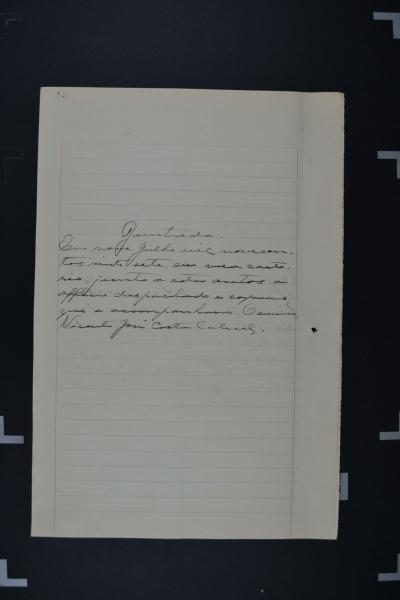 Juntada
Em nove Julho mil novecen-
tos e vinte sete, em meu carto-
rio, junto a estes autos, o
officio despachado e copias
que o acompanham. O escrivão
Vicente José Costa